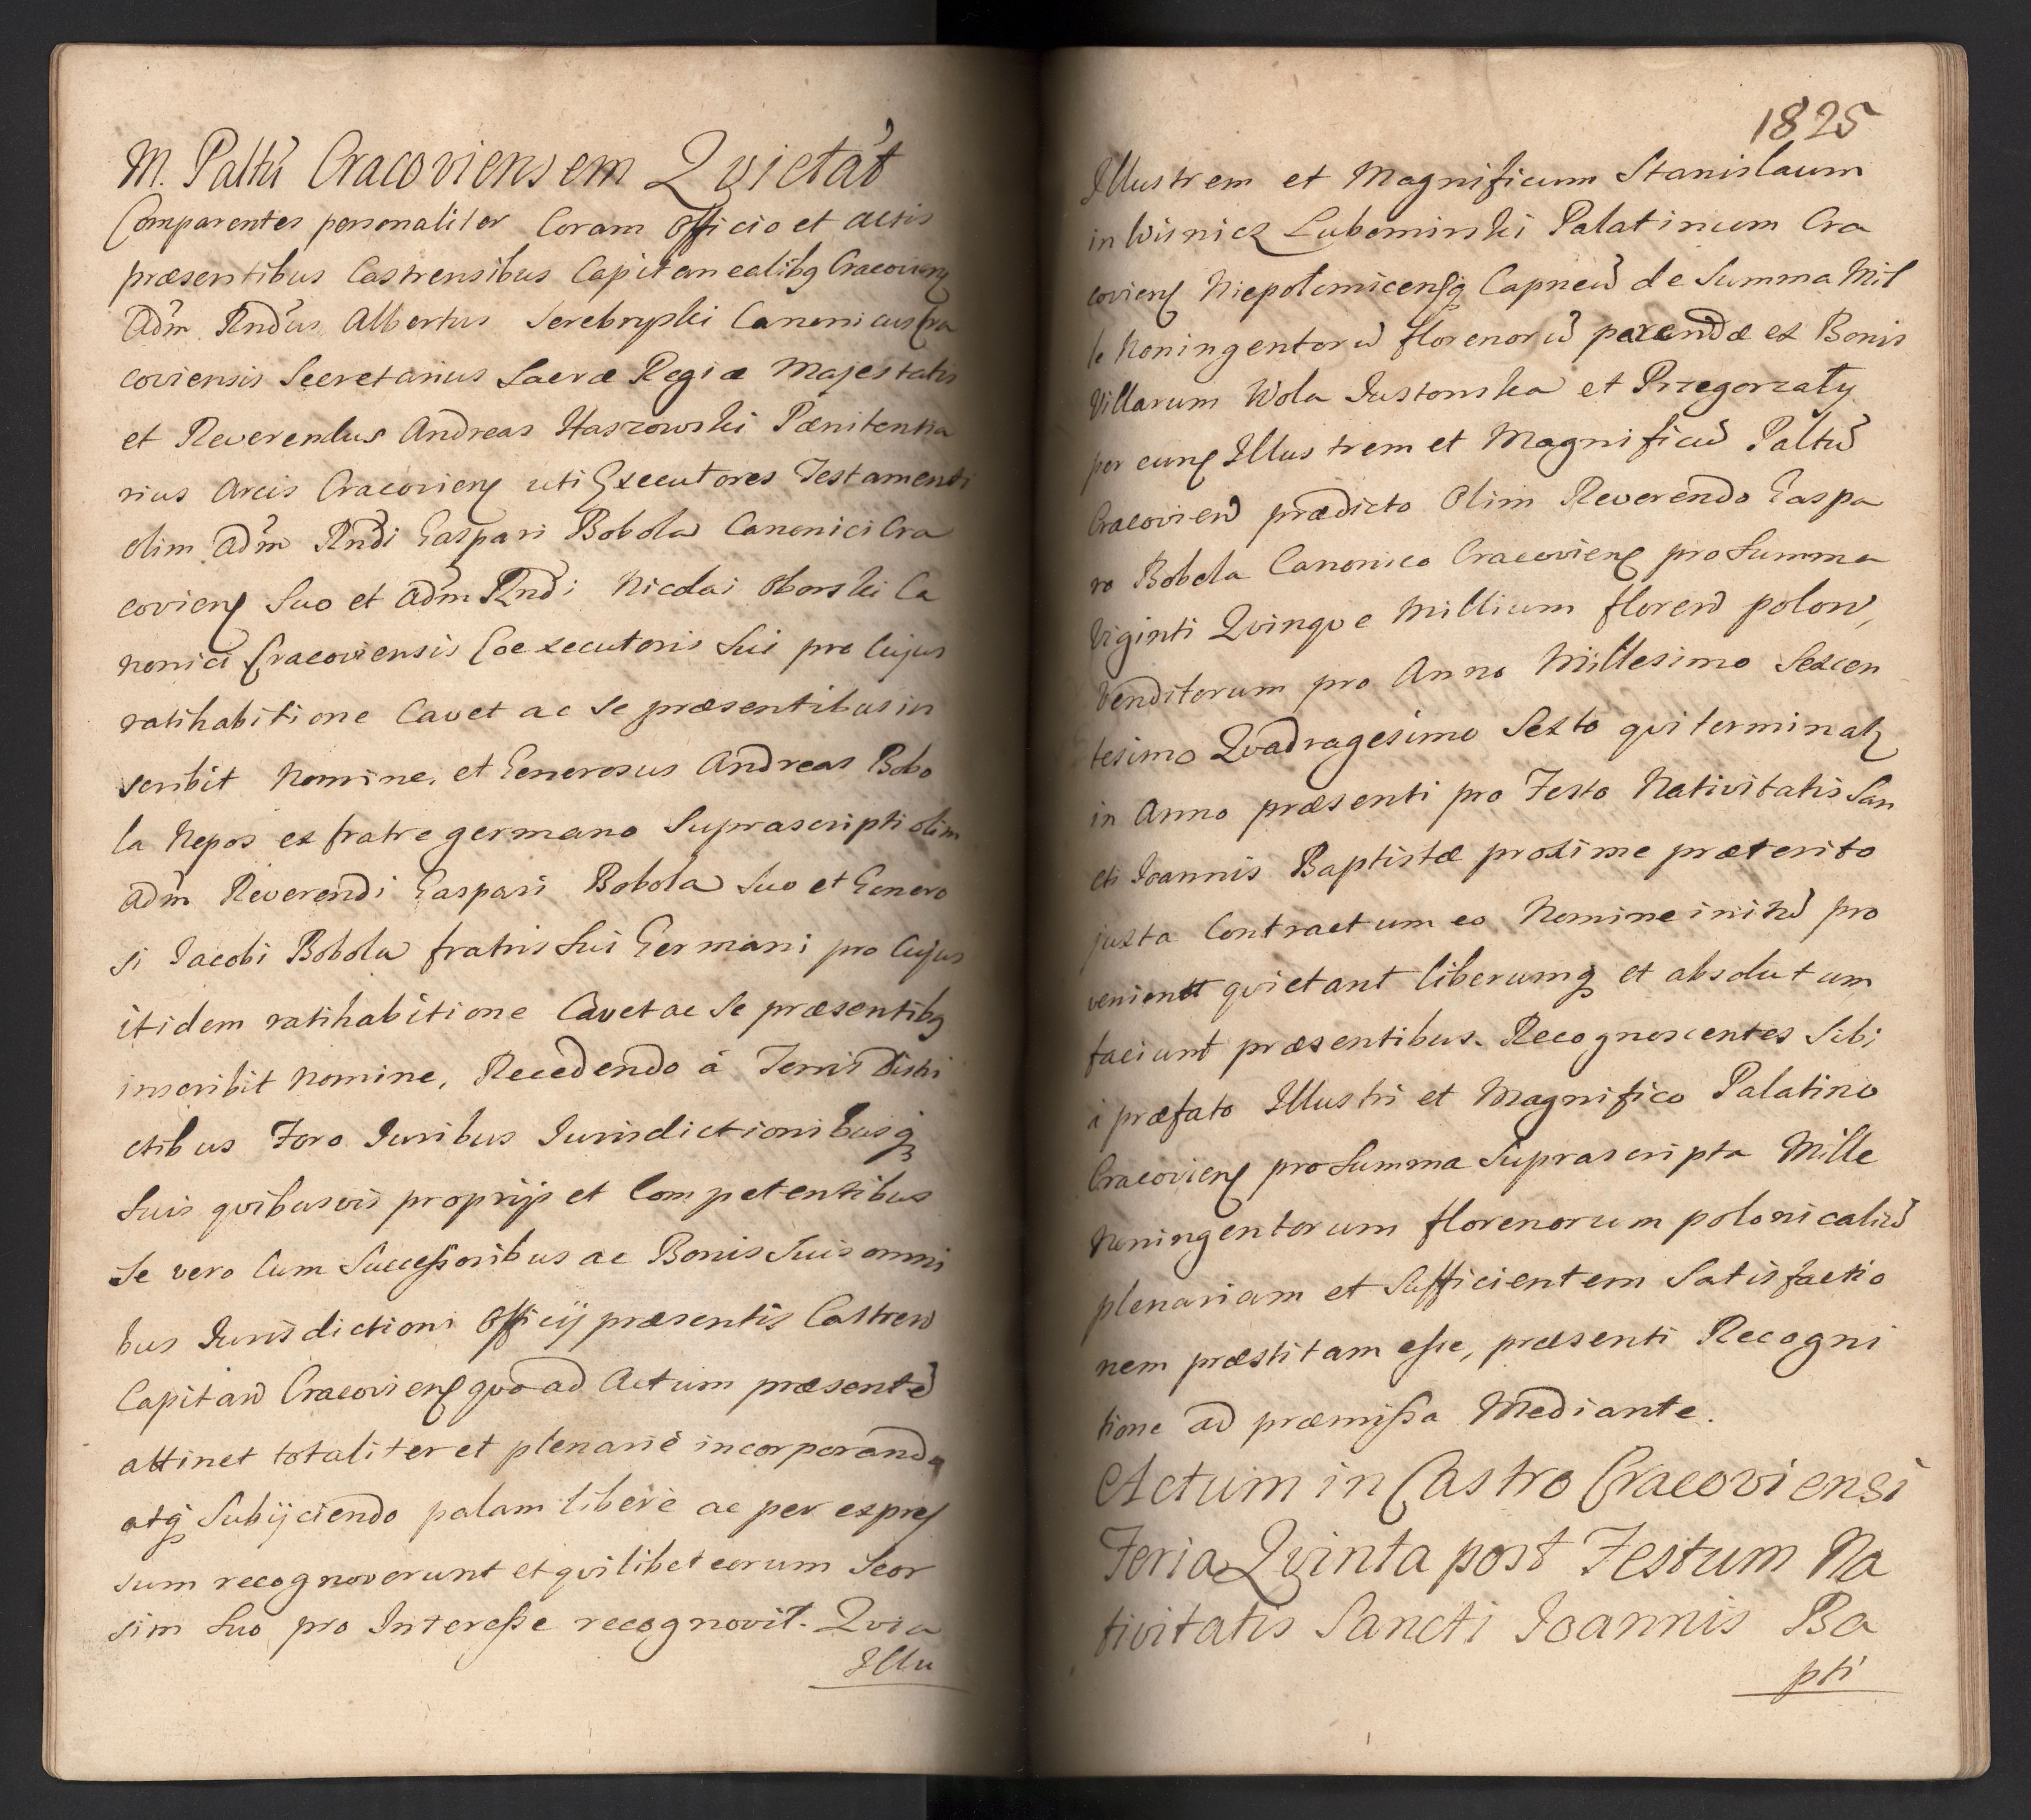 M. Paltũ Cracoviensem Qvietat
Comparentes personaliter Coram Officio et actis
præsentibus Castrensibus Capitanealibq Cracovieñ
Adm̃ Rnd̃us Albertus Serebryski Canonicus Cra
coviensis Secretarius Sacræ Regiæ Majestatis
et Reverendus Andreas Haszowski Pænitentia
rius Arcis Cracovieñ uti Executores Testamenti
olim Adm̃ Rnd̃i Gaspari Bobola Canonici Cra
covieñ Suo et Adm̃ Rnd̃i Nicolai Oborski Ca
nonici Cracoviensis Coexecutoris Sui pro Cujus
ratihabitione Cavet ac Se præsentibus in
scribit Nomine, et Generosus Andreas Bobo
la Nepos ex fratre germano Suprascripti olim
Adm̃ Reverendi Gaspari Bobola Suo et Genero
si Iacobi Bobola fratris Sui Germani pro Cujus
itidem ratihabitione Cavet ac Se præsentibq
inscribit Nomine, Recedendo á Terris Distri
ctibus Foro Iuribus Iurisdictionibusq
Suis qvibusvis proprijs et Competentibus
Se vero Cum Succeßoribus ac Bonis Suis omni
bus Iurisdictioni Officij præsentis Castreñ
Capitañ Cracovieñ qvo ad Actum præsentẽ
attinet totaliter et plenariè incorporando
atq Subijciendo palam liberè ac per expres
sum recognoverunt et qvilibet eorum Seor
sim Suo pro Interesse recognovit. Qvia
Illu
1825
Illustrem et Magnificum Stanislaum
in Wisnicz Lubomirski Palatinum Cra
covieñ Niepolomicensq Capneũ de Summa Mil
le Noningentorũ florenorũ parendæ ex Bonis
Villarum Wola Iustowska et Przegorzały
per eunđ Illustrem et Magnificũ Paltũ
Cracovieñ prædicto Olim Reverendo Gaspa
ro Bobola Canonico Cracovieñ pro Summa
Viginti Qvinqve Millium floreñ poloñ,
Venditorum pro Anno Millesimo Sexcen
tesimo Qvadragesimo Sexto qvi terminatz
in Anno præsenti pro Festo Nativitatis San
cti Ioannis Baptistæ proxime præterito
juxta Contractum eo Nomine initũ pro
venientt qvietant liberumq et absolutum
faciunt præsentibus. Recognoscentes Sibi
á præfato Illustri et Magnifico Palatino
Cracovieñ pro Summa Suprascripta Mille
Noningentorum florenorum polonicaliũ
plenariam et Sufficientem Satisfactio
nem præstitam eße, præsenti Recogni
tione ad præmißa Mediante.
Actum in Castro Cracoviensi
Feria Qvinta post Festum Na
tivitatis Sancti Ioannis Ba
pti